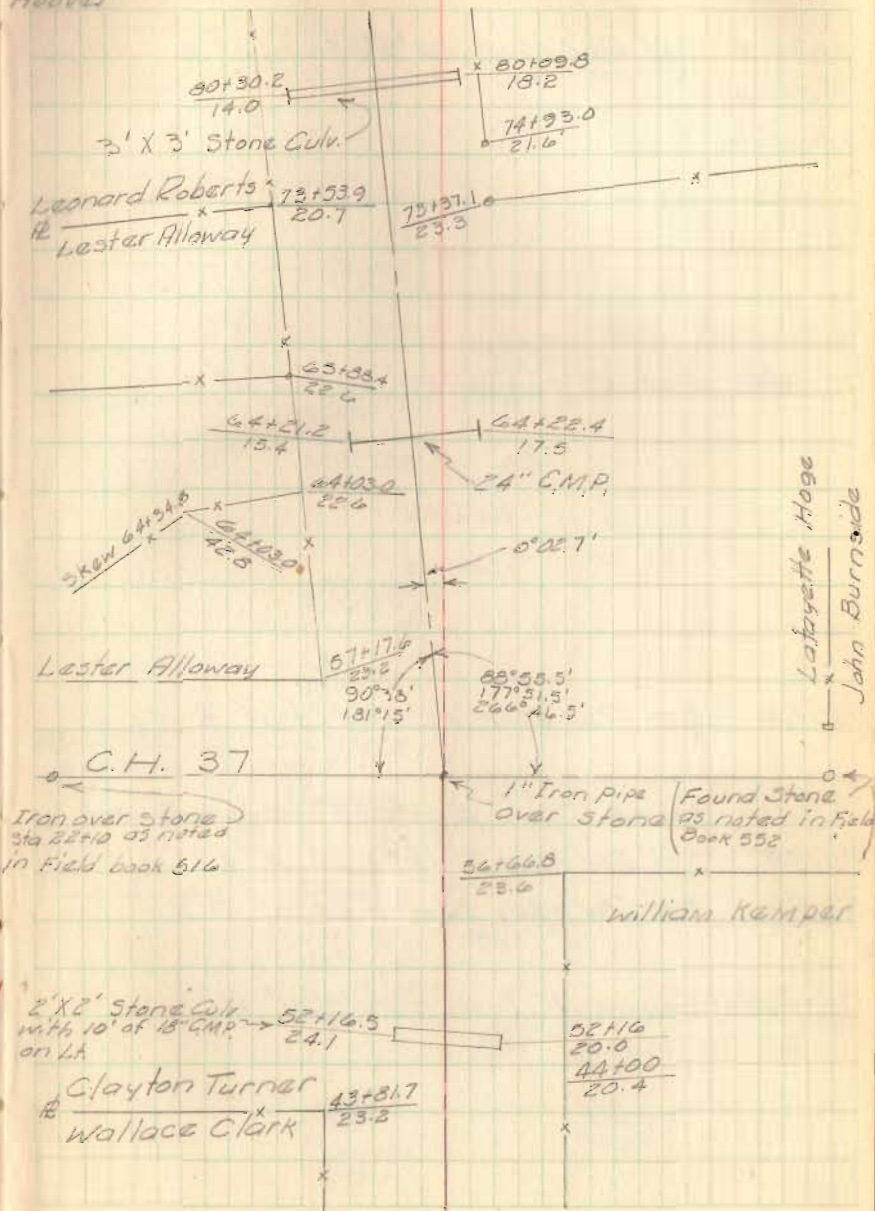 80+30.2
14.0
80+09.8
18.2
3' X 3' Stone Culv.
74+93.0
21.6'
Leonard Roberts
73+53.9
20.7
73+37.1
23.3
Lester Alloway
65+88.4
22.6
64+21.2
15.4
64+22.4
17.5
24" C.M.P.
64+03.0
22.6
Skew 64+34.8
64+03.0
42.8
0°02.7'
Lafayette Hoge
John Burnside
Lester Alloway
57+17.6
23.2
90°38'
181°15'
88°55.5'
177°51.5'
266°46.5'
C.H. 37
Iron over Stone
Sta 22+10 as noted
in Field book 516
1" Iron Pipe
over Stone
Found Stone
as noted in Field
Book 552
56+66.8
23.6
William Kemper
2' X 2' Stone Culv.
with 10' of 18" CMP
on Lt
52+16.5
24.1
52+16
20.0
44+00
20.4
Clayton Turner
Wallace Clark
43+81.7
23.2